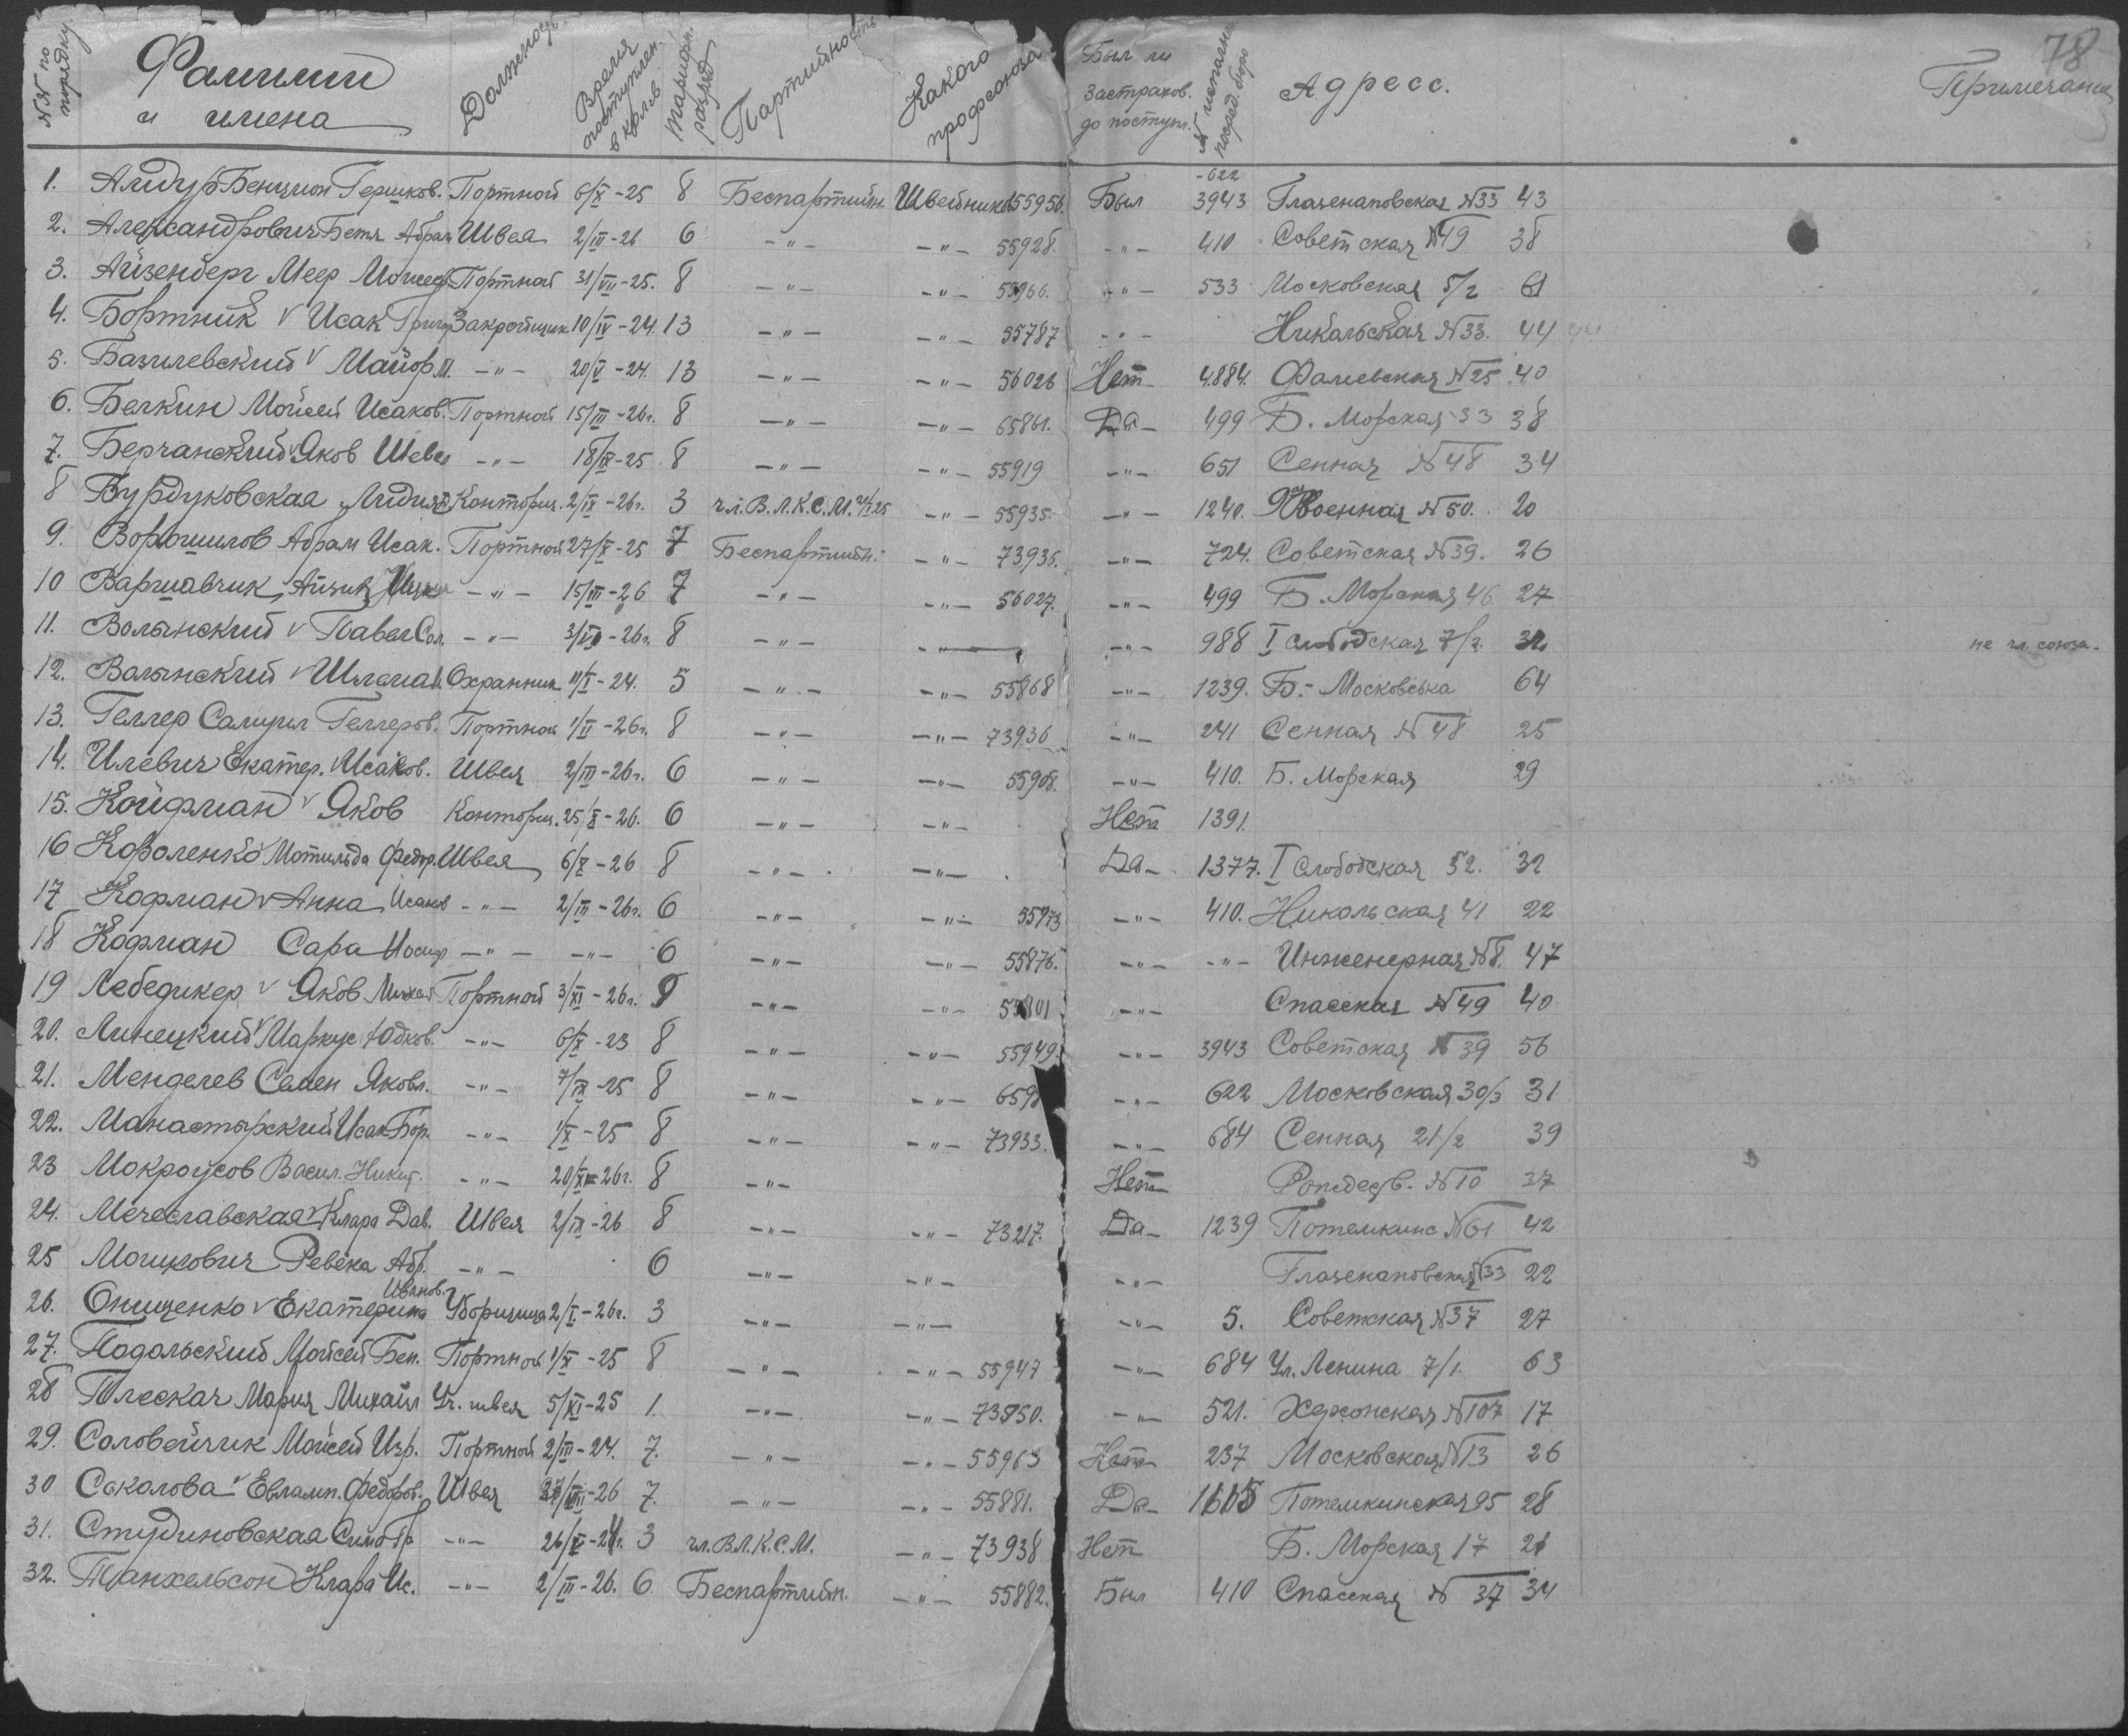 78
№№ по порядку. Фамилии и имена Должность. Время поступлен. в колев. Тарифн. разряд Партийность Какого профсоюза Был ли застрахов. до поступл. № испалн посред. бюро Адресс. Примечание
1. Алидур Бенцион Гершков. Портной 6/X-25 8 Беспартийн. Швейников 55956. Был -622 3943 Глазенаповская №33 43
2. Александрович Бетя Абрам Швея 2/III-26 6 -"- -"- 55928. -"- 410 Советская №49 38
3. Айзенберг Меер Моисеев. Портной 31/VII-25. 8 -"- -"- 55966. -"- 533 Московская 5/2 61
4. Бортник v Исак Григор Закройщик 10/IV-24. 13 -"- -"- 55787 -"- Никольская №33. 44
5. Базилевский v Майор М. -"- 20/V-24. 13 -"- -"- 56026 Нет 4884. Фалиевская №25 40
6. Белкин Мойсей Исаков. Портной 15/III-26г. 8 -"- -"- 65861. Да- 499 Б. Морская 33 38
7. Берчанский v Яков Шевел -"- 18/IX-25 8 -"- -"- 55919 -"- 651 Сенная №48 34
8 Бурдуковская Лидия Конторщ. 2/IX-26г. 3 чл. В.Л.К.С.М. -"- 55935. -"- 1240. Военная №50. 20
9. Ворошилов Абрам Исак. Портной 27/X-25 7 Беспартийн. -"- 73935. -"- 724. Советская №39. 26
10 Варшавчик Айзик -"- 15/III-26 7 -"- -"- 56027. -"- 499 Б. Морская 46 27
11. Волынский v Павел Сол. -"- 3/VI-26г. 8 -"- -"- -"- 988 I Слободская 7/2. 32 не чл. союза.
12. Волынский v Шлема Охранник 11/I-24. 5 -"- -"- 55868 -"- 1239. Б.-Московська 64
13. Геллер Самуил Геллеров. Портной 1/II-26г. 8 -"- -"- 73936 -"- 241 Сенная №48 25
14. Илевич Екатер. v Исаков. Швея 2/III-26г. 6 -"- -"- 55908. -"- 410. Б. Морская 29
15. Койфман v Яков Конторщ. 25/X-26. 6 -"- -"- Нет 1391.
16 Короленко Мотильда Федор. Швея 6/X-26 8 -"- -"- Да- 1377. I Слободская 52. 32
17 Кофман v Анна Исаков -"- 2/III-26г. 6 -"- -"- 55973 -"- 410. Никольская 41 22
18 Кофман Сара Иосиф -"- -"- 6 -"- -"- 55876. -"- -"- Инженерная №8. 47
19 Лебедикер v Яков Михел Портной 3/XI-26г. 8 -"- -"- 55801 -"- Спасская №49 40
20. Линецкий v Маркус Юдков. -"- 6/X-23 8 -"- -"- 55949. -"- 3943 Советская №39 56
21. Менделев Семен Яковл. -"- 7/IX-25 8 -"- -"- 659 -"- 622 Московская 30/3 31
22. Манастырский Исак Бор. -"- 1/X-25 8 -"- -"- 73933. -"- 684 Сенная 21/2 39
23 Мокроусов Васил. Никит. -"- 20/XI-26г. 8 -"- Нет Рождеств. №10 37
24. Мечеславская v Клара Дав. Швея 2/IX-26 8 -"- -"- 73217. Да- 1239 Потемкинс №61 42
25 Мошкович Ревека Абр. -"- 6 -"- -"- -"- Глазенаповская №33 22
26. Онищенко v Екатерина Иванов. Уборщица 2/I-26г. 3 -"- -"- -"- 5. Советская №37 27
27. Подольский Мойсей Бен. Портной 1/X-25 8 -"- -"- 55947 -"- 684 Ул. Ленина 7/1. 63
28 Плескач Мария Михайл Уч. швея 5/XI-25 1. -"- -"- 73850. -"- 521. Херсонская №107 17
29. Соловейчик Мойсей Изр. Портной 2/III-24. 7. -"- -"- 55963 Нет 237 Московская №13 26
30 Соколова v Евламп. Федоров. Швея 27/VII-26 7. -"- -"- 55881. Да- 1605 Потемкинская 95 28
31. Студиновская Сима Гр -"- 26/V-24г. 3 чл. В.Л.К.С.М. -"- 73938 Нет Б. Морская 17 21
32. Танхельсон Клара Ис. -"- 2/III-26. 6 Беспартийн. -"- 55882. Был 410 Спасская №37 34